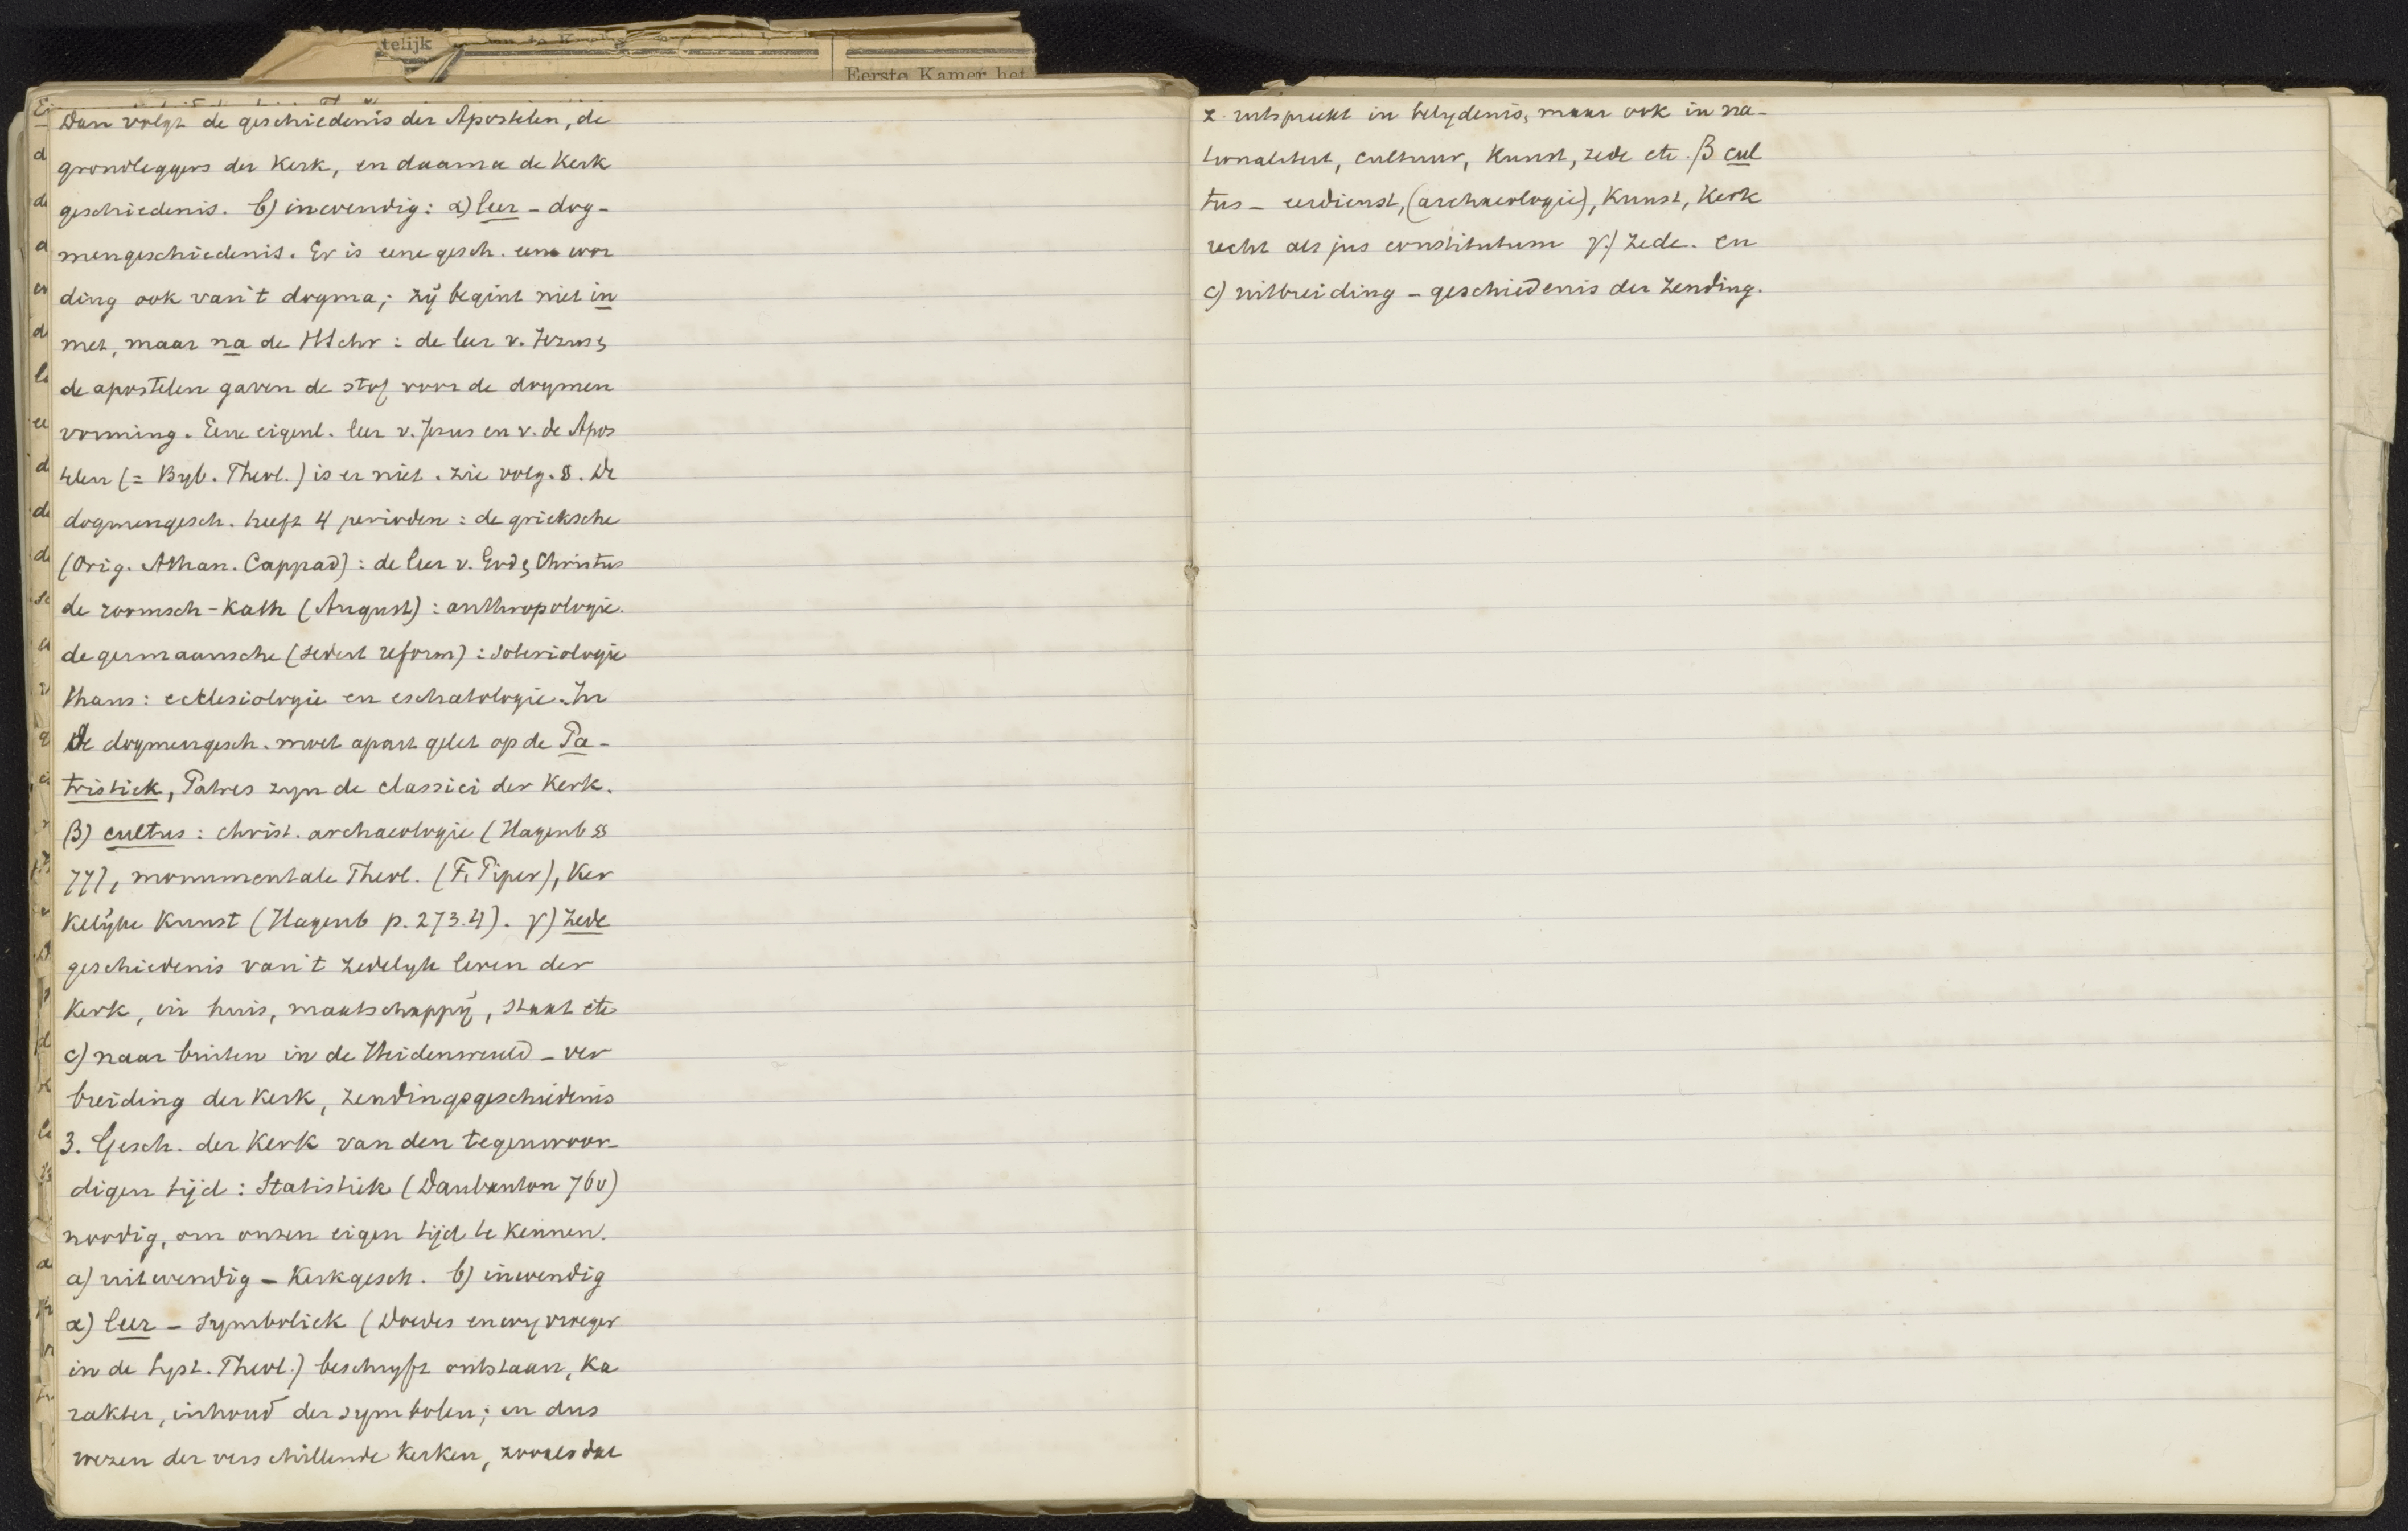 telijk
Eerste Kamer het
Dan volgt de geschiedenis der Apostelen, de
grondleggers der Kerk, en daarna de Kerk
geschiedenis. b) inwendig: α) leer - dog-
mengeschiedenis. Er is eene gesch. eene wor
ding ook van 't dogma; zij begint niet in
met, maar na de HSchr: de leer v. Jezus &
de apostelen gaven de stof voor de dogmen
vorming. Eene eigenl. leer v. Jezus en v. de Apos
telen (= Byb. Theol.) is er niet. zie volg. §. De
dogmengesch. heeft 4 perioden: de grieksche
(Orig. Athan. Cappad): de leer v. God & Christus
de roomsch-kath (August): anthropologie.
de germaansche (sedert reform): soteriologie
thans: ecclesiologie en eschatologie. In
de dogmengesch. moet apart gelet op de Pa-
tristiek, Patres zyn de classici der Kerk.
β) cultus: christ. archaeologie (Hagenb §§
77), monumentale Theol. (F. Piper), Ker
kelijke Kunst (Hagenb p. 273.4). γ) zede
geschiedenis van 't zedelyk leven der
Kerk, in huis, maatschappij, staat etc
c) naar buiten in de Heidenwereld - ver
breiding der Kerk, zendingsgeschiedenis
3. Gesch. der Kerk van den tegenwoor-
digen tijd: Statistiek (Daubanton 76v)
noodig, om onzen eigen tijd te kennen.
a) uitwendig - Kerkgesch. b) inwendig
α) leer - Symboliek (Doedes vroeger
in de Syst. Theol.) beschryft ontstaan, Ka
rakter, inhoud der symbolen; en dus
wezen der verschillende Kerken, zooals dat
z. uitspreekt in belydenis, maar ook in na-
tionaliteit, cultuur, Kunst, zede etc. β cul
tus - eerdienst, (archaeologie), Kunst, Kerk
recht als jus constitutum γ) zede. en
c) uitbreiding - geschiedenis der Zending.